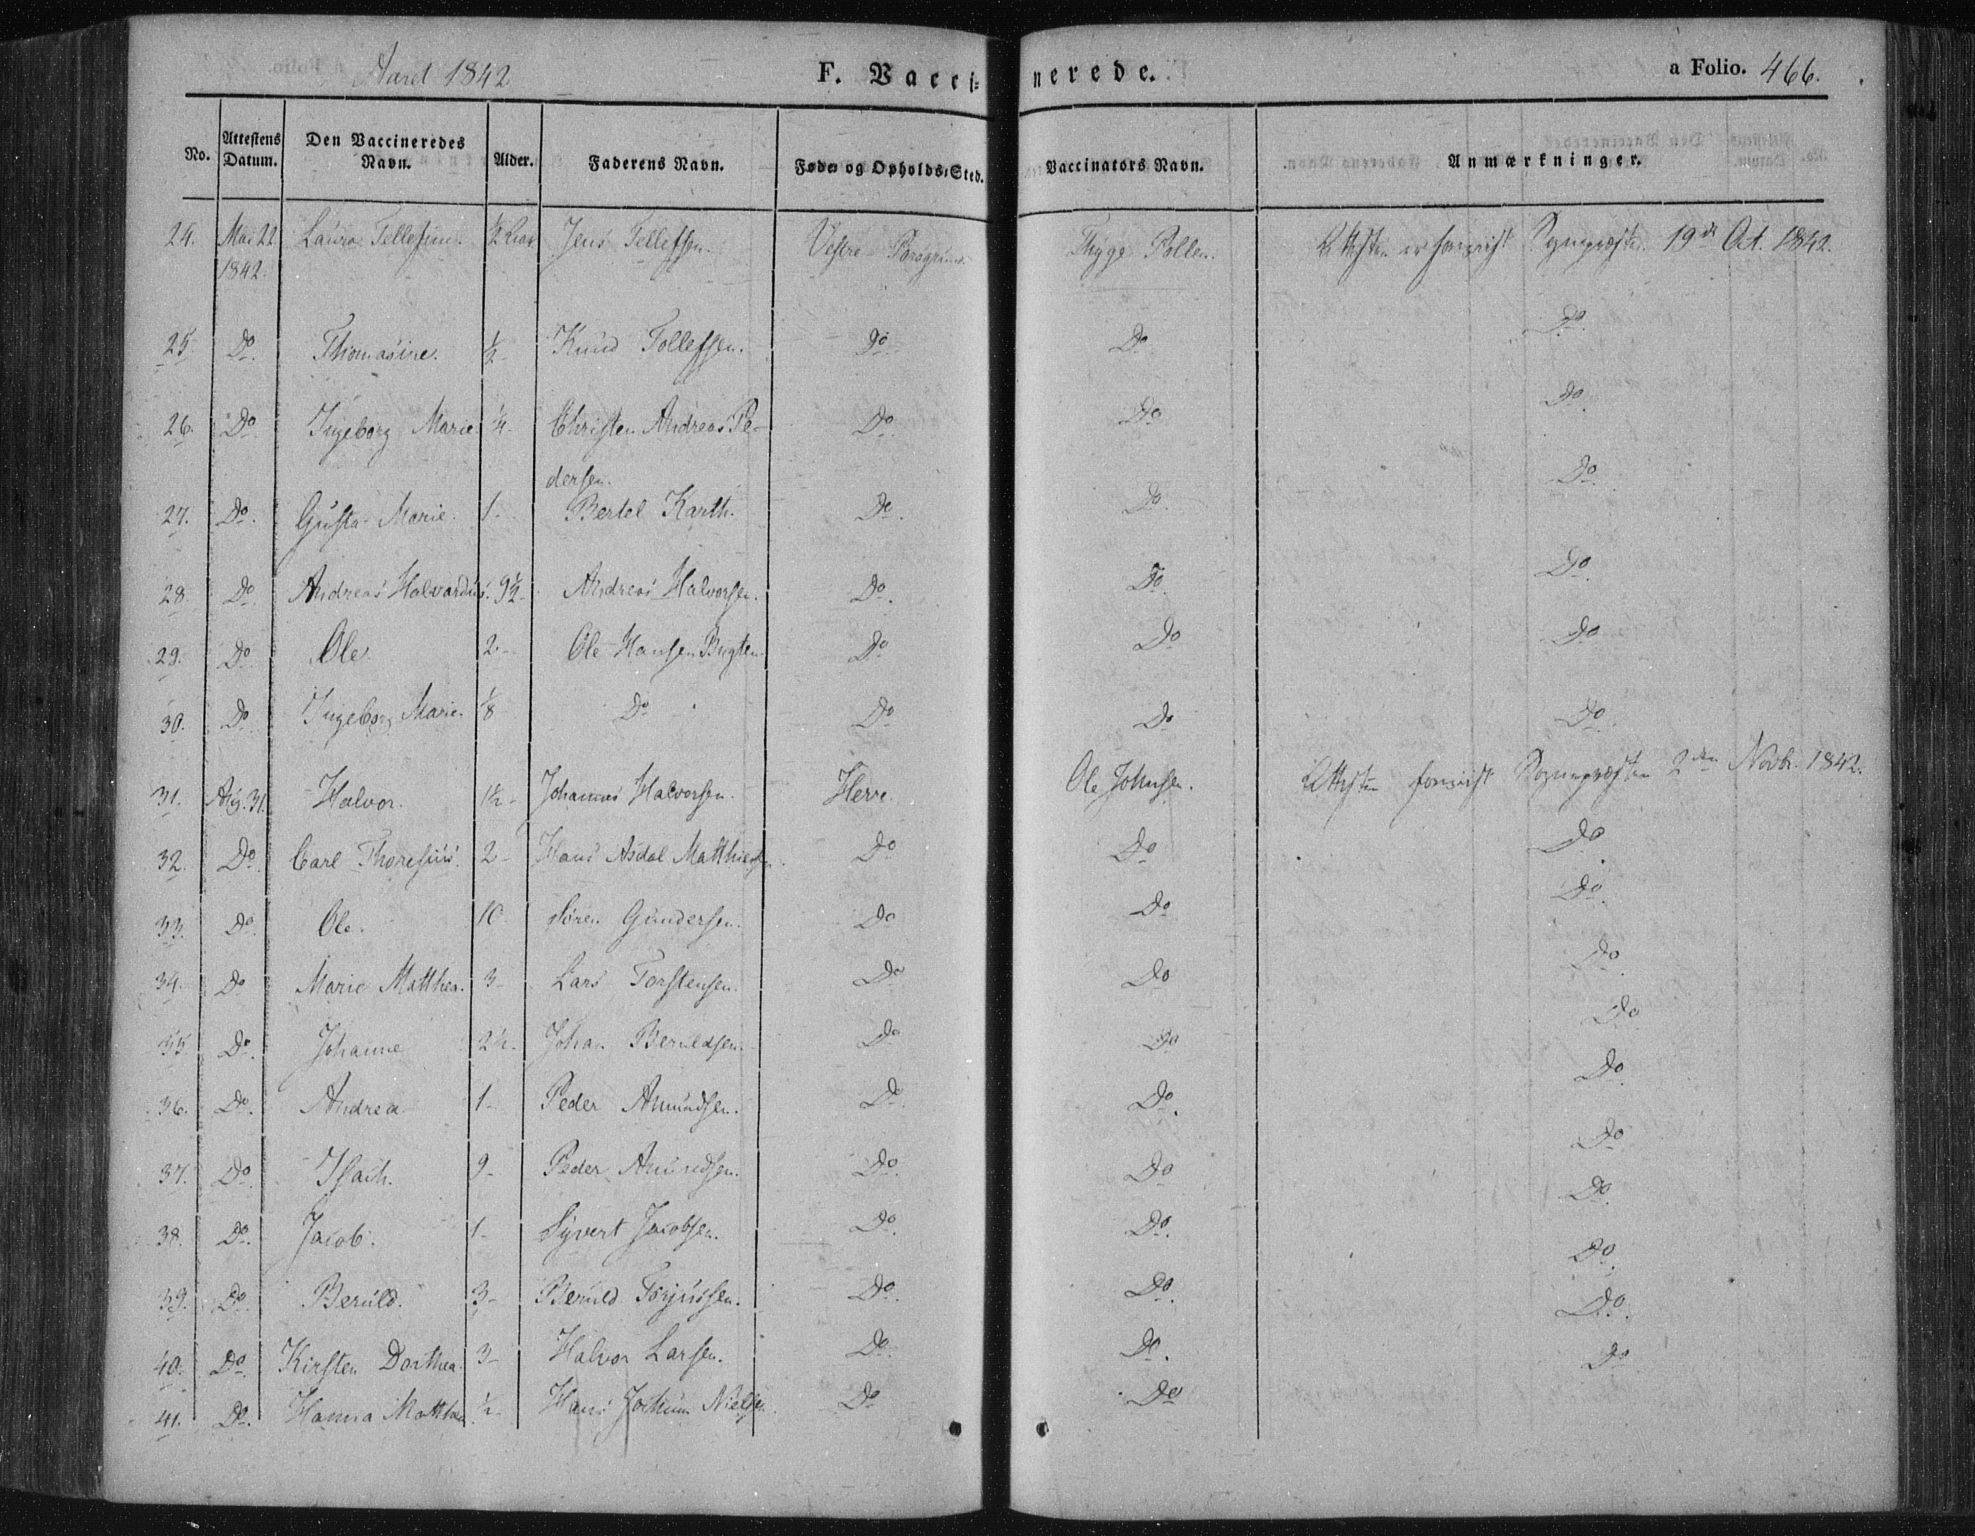 Aaret 1842
F. Vacci-nerede.
a Folio. 466.
No. Attestens Datum. Den Vaccineredes Navn. Alder. Faderens Navn. Føde- og Opholds-Sted. Vaccinators Navn. Anmærkninger.
24. Mai 22 1842. Laura Tellefine. 1/2 Aar Jens Tellefsen. Vestre Porsgrund. Thyge Pollen. Attesten er forevist Sognepræsten 19de Oct. 1842.
25 Do. Thomasine. 1/2- Knud Tollefsen. Do. Do. Do.
26. Do. Ingeborg Marie 1/4- Christen Andreas Pe-
dersen. Do. Do. Do.
27. Do. Gusta Marie. 1- Bertel Karth. Do. Do. Do.
28. Do. Andreas Halvardus. 9 1/2- Andreas Halvorsen. Do. Do. Do.
29. Do. Ole. 2- Ole Hansen Bugten Do. Do. Do.
30. Do. Ingeborg Marie. 1/8 Do. Do. Do. Do.
31. Aug. 31. Halvor. 1 1/2- Johannes Halvorsen. Herre. Ole Johnsen. Attesten forevist Sognepræsten 2den Novbr. 1842.
32. Do. Carl Thoresius. 2- Hans Asdal Matthies Do. Do. Do.
33. Do. Ole. 10. Søren Gundersen. Do. Do. Do.
34. Do. Marie Matthea. 3- Lars Torstensen. Do. Do. Do.
35. Do. Johanne 2 1/2. Johan Beruldsen. Do. Do. Do.
36. Do. Andrea 1- Peder Amundsen. Do. Do. Do.
37. Do. Isach. 9- Peder Amundsen. Do. Do. Do.
38. Do. Jacob. 1- Syvert Jacobsen. Do. Do. Do.
39. Do. Beruld. 3- Beruld Torjussen. Do. Do. Do.
40. Do. Kirsten Dorthea. 3- Halvor Larsen. Do. Do. Do.
41. Do. Hanna Matthea 1/2- Hans Jochum Nielsen Do. Do.